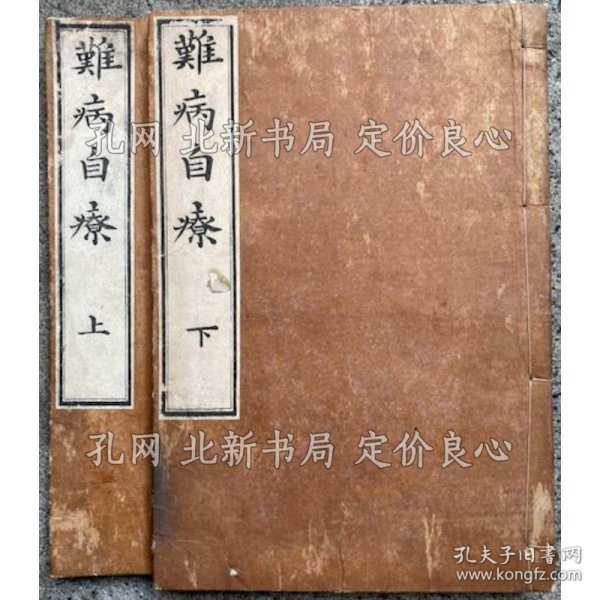 難病自療
上
難病自療
下
孔网 北新书局 定价良心
孔网 北新书局 定价良心
孔夫子旧書网
www.kongfz.com